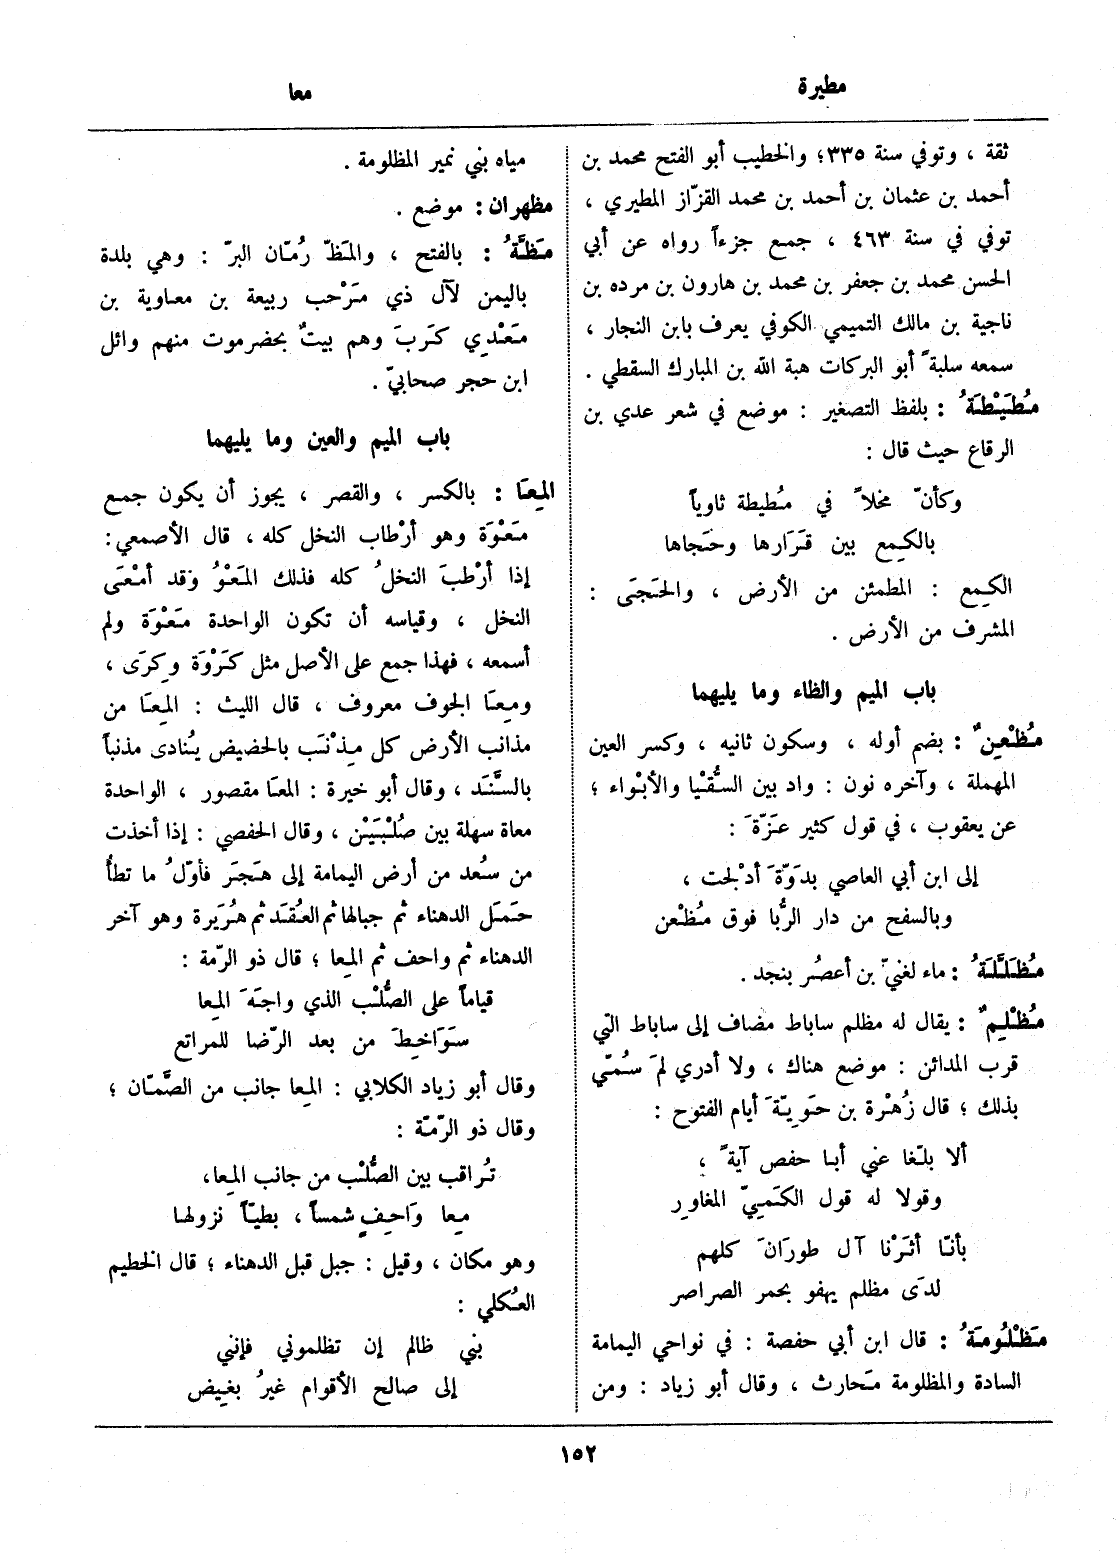 مطيرة
معا
ثقة ، وتوفي سنة ٣٣٥؛ والخطيب أبو الفتح محمد بن
أحمد بن عثمان بن أحمد بن محمد القزّاز المطيري ،
توفي في سنة ٤٦٣ ، جمع جزءاً رواه عن أبي
الحسن محمد بن جعفر بن محمد بن هارون بن مرده بن
ناجية بن مالك التميمي الكوفي يعرف بابن النجار ،
سمعه سلبةً أبو البركات هبة الله بن المبارك السقطي .
مُطَيْطَةُ : بلفظ التصغير : موضع في شعر عدي بن
الرقاع حيث قال :
وكأنّ مخلاً في مُطيطة ثاوياً
بالكِمع بين قَرَارها وحَجاها
الكِمع : المطمئن من الأرض ، والحَجَى :
المشرف من الأرض .
باب الميم والظاء وما يليهما
مُظْعِنٌ : بضم أوله ، وسكون ثانيه ، وكسر العين
المهملة ، وآخره نون : واد بين السُّقْيا والأبْواء ؛
عن يعقوب ، في قول كثير عَزّةَ :
إلى ابن أبي العاصي بدَوّةَ أدْلجت ،
وبالسفح من دار الرُّبا فوق مُظْعن
مُظَلَّلَةُ : ماء لغنيّ بن أعصُر بنجد .
مُظْلِمٌ : يقال له مظلم ساباط مضاف إلى ساباط التي
قرب المدائن : موضع هناك ، ولا أدري لمَ سُمّي
بذلك ؛ قال زُهْرة بن حَوِيّةَ أيام الفتوح :
ألا بلّغا عني أبا حفص آيةً ،
وقولا له قول الكَمِيّ المغاورِ
بأنّا أثَرْنا آل طورَانَ كلهم
لدَى مظلم يهفو بحمر الصراصر
مَظْلُومَةُ : قال ابن أبي حفصة : في نواحي اليمامة
السادة والمظلومة مَحارث ، وقال أبو زياد : ومن
مياه بني نمير المظلومة .
مظهران : موضع .
مَظَّةُ : بالفتح ، والمَظّ رُمّان البرّ : وهي بلدة
باليمن لآل ذي مَرْحب ربيعة بن معاوية بن
مَعْدي كَرَبَ وهم بيتٌ بحضرموت منهم وائل
ابن حجر صحابيّ .
باب الميم والعين وما يليهما
المِعَا : بالكسر ، والقصر ، يجوز أن يكون جمع
مَعْوَة وهو أرْطاب النخل كله ، قال الأصمعي :
إذا أرْطبَ النخلُ كله فذلك المَعْوُ وقد أمْعَى
النخل ، وقياسه أن تكون الواحدة مَعْوَة ولم
أسمعه ، فهذا جمع على الأصل مثل كَرْوَة وكِرَى ،
ومِعَا الجوف معروف ، قال الليث : المِعَا من
مذانب الأرض كل مِذْنَب بالحضيض يُنادى مذنباً
بالسَّنَد ، وقال أبو خيرة : المعَا مقصور ، الواحدة
معاة سهلة بين صُلْبَيْن ، وقال الحفصي : إذا أخذت
من سُعد من أرض اليمامة إلى هَجَر فأوّلُ ما تطأُ
حَمَل الدهناء ثم جبالها ثم العُقَد ثم هُرَيرة وهو آخر
الدهناء ثم واحف ثم المِعا ؛ قال ذو الرّمة :
قياماً على الصُّلْب الذي واجَهَ المِعا
سَوَاخِطَ من بعد الرّضا للمراتع
وقال أبو زياد الكلابي : المِعا جانب من الصَّمّان ؛
وقال ذو الرّمّة :
تُراقب بين الصُّلْب من جانب المِعا،
مِعا وَاحِفٍ شمساً ، بطيّاً نزولها
وهو مكان ، وقيل : جبل قبل الدهناء ؛ قال الخطيم
العُكلي :
بني ظالم إن تظلموني فإنني
إلى صالح الأقوام غيرُ بغيض
١٥٢